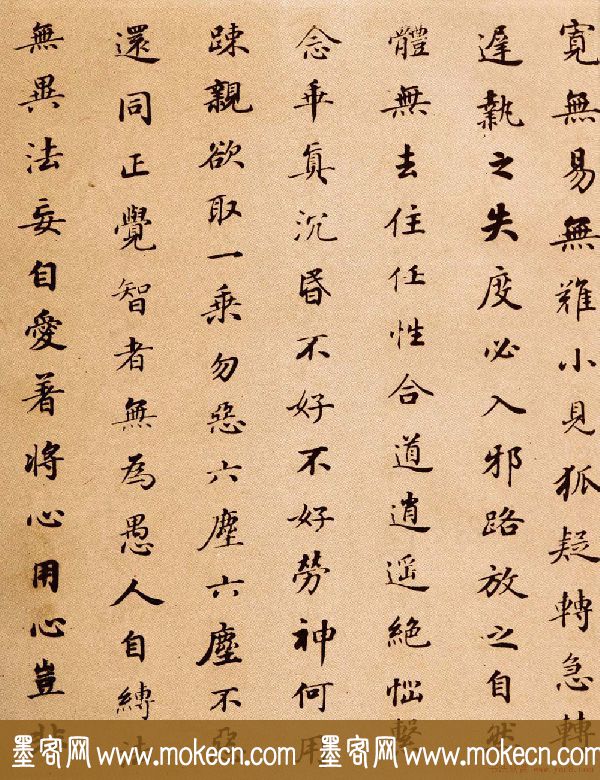 寛無易無難小見狐疑轉急轉
遲執之失度必入邪路放之自然
體無去住任性合道逍遥絶惱繫
念乖真沉昏不好不好勞神何用
踈親欲取一乗勿惡六塵六塵不惡
還同正覺智者無為愚人自縛法
無異法妄自愛著将心用心豈非
墨客网 www.mokecn.com 墨客网 www.mokecn.com